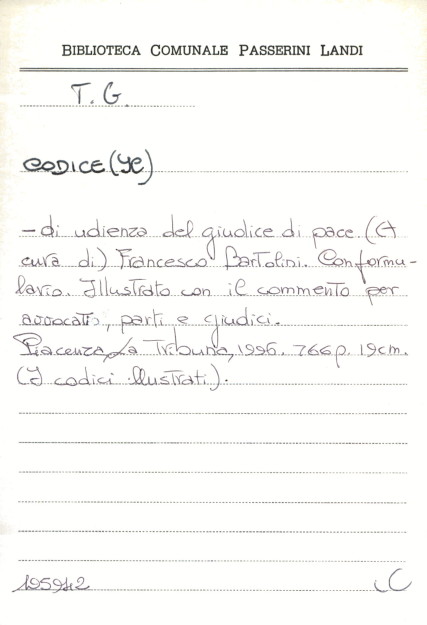 BIBLIOTECA COMUNALE PASSERINI LANDI
T. G.
CODICE (Il)
- di udienza del giudice di pace. (A
cura di) Francesco Bartolini. Con formu-
lario. Illustrato con il commento per
avvocati, parti e giudici.
Piacenza, La Tribuna, 1996. 766 p. 19 cm.
(I codici illustrati).
195942